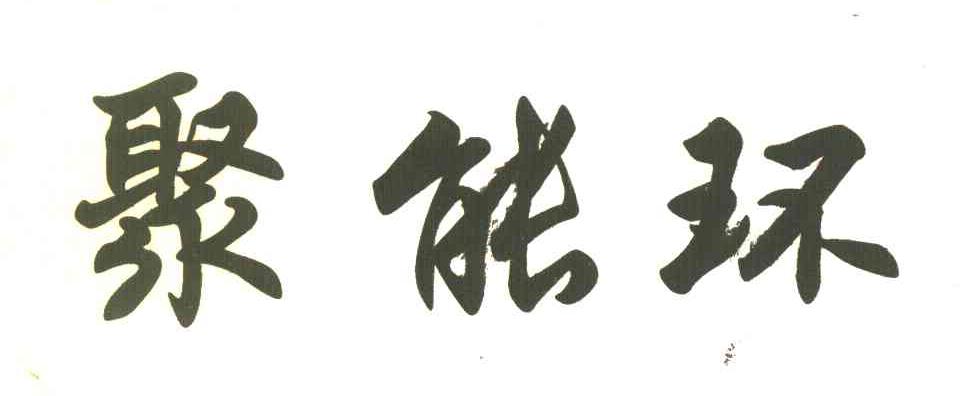 聚能环